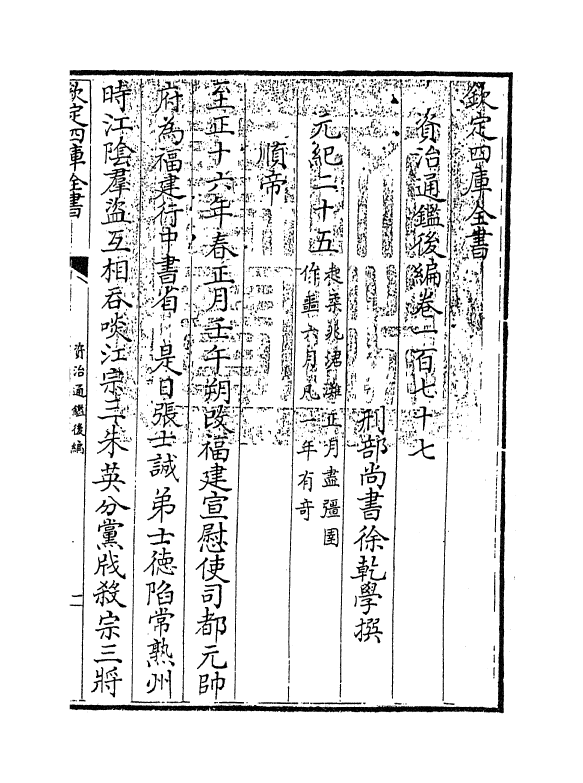 欽定四庫全書
資治通鑑後編卷一百七十七
刑部尚書徐乾學撰
元紀二十五
起柔兆涒灘正月盡彊圉
作噩六月凡一年有奇
順帝
至正十六年春正月壬午朔改福建宣慰使司都元帥
府為福建行中書省 是日張士誠弟士徳陷常熟州
時江陰羣盜互相吞啖江宗三朱英分黨戕殺宗三將
欽定四庫全書
資治通鑑後編